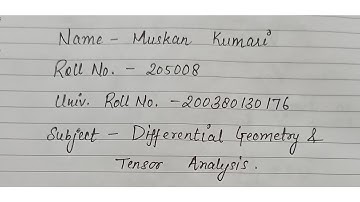 Name - Muskan Kumari
Roll No. - 205008
Univ. Roll No. - 200380130176
Subject - Differential Geometry &
Tensor Analysis.